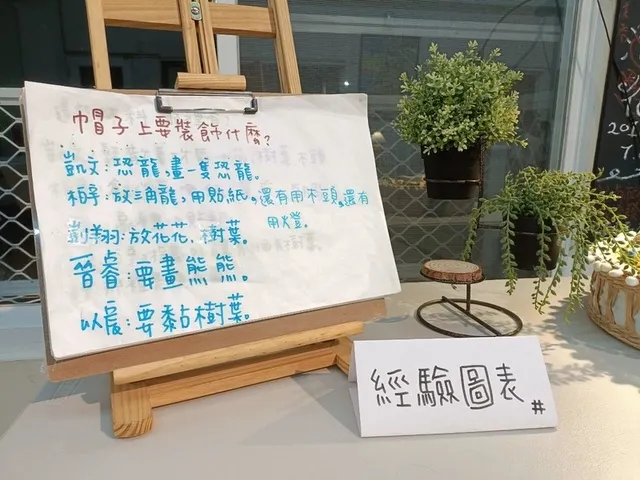 帽子上要裝飾什麼?
凱文:恐龍,畫一隻恐龍。
柏宇:放三角龍,用貼紙,還有用木頭,還有
用火登。
劃翔:放花花、樹葉。
晉睿:要畫熊熊。
以晨:要黏樹葉。
經驗圖表
#
20
7.